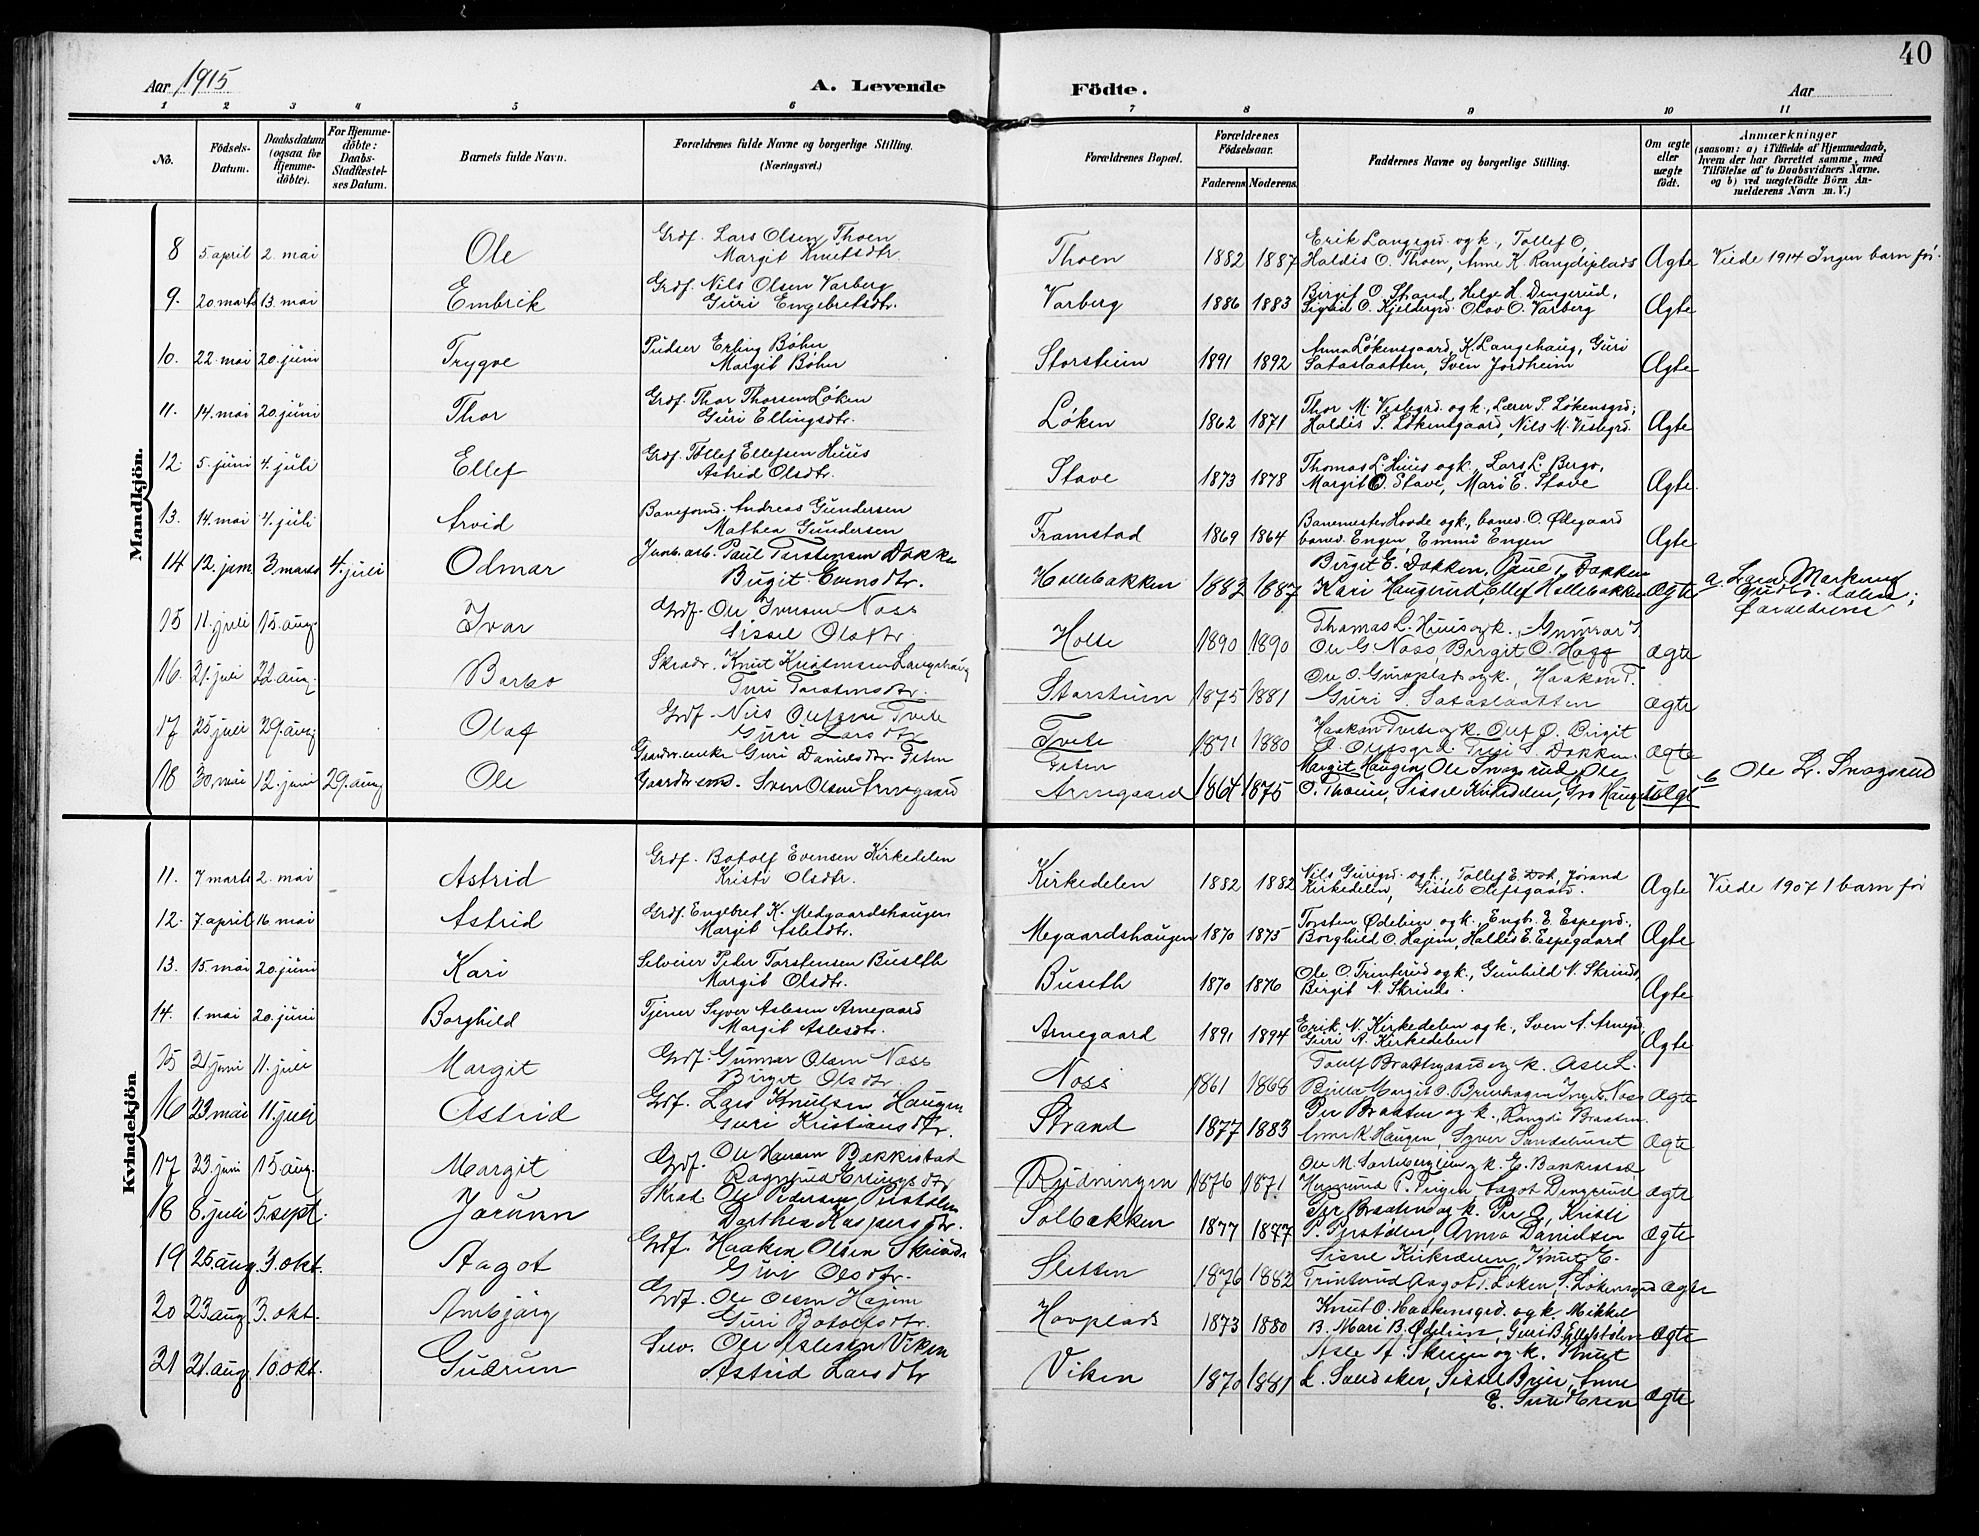 40
Aar 1915
A. Levende Födte.
Aar
1 2 3 4 5 6 7 8 9 10 11
No.
Födsels-Datum.
Daabsdatum (ogsaa for Hjemmedöbte).
For Hjemmedöbte: Daabs-Stadfæstelses Datum.
Barnets fulde Navn.
Forældrenes fulde Navne og borgerlige Stilling. (Næringsvei.)
Forældrenes Bopæl.
Forældrenes Födselsaar.
Faderens. Moderens.
Faddernes Navne og borgerlige Stilling.
Om ægte eller uægte födt.
Anmærkninger
(saasom: a) i Tilfælde af Hjemmedaab, hvem der har forrettet samme, med Tilföielse af to Daabsvidners Navne, og b) ved uægtefödte Börn Anmelderens Navn m. V.)
Mandkjön.
8 5. april 2. mai Ole Grdf. Lars Olsen Thoen Margit Knutsdtr. Thoen 1882 1887 Erik Langegrd. og k., Tollef O. Haldis O. Thoen, Anne K. Rangdiplads Ægte Viede 1914 Ingen barn før.
9. 20 marts 13. mai Embrik Grdf. Nils Olsen Varberg Guri Engebretsdtr. Varberg 1886 1883 Birgit O. Strand, Helge H. Dengerud, Sigrid O. Kjeldergrd. Olav O. Varberg Ægte
10. 22. mai 20. juni Trygve Pudser Erling Bøhn Margit Bøhn Storstuim 1891 1892 Anna Løkensgaard, K. Langehaug, Guri Sataslaatten, Sven Jordheim Ægte
11. 14. mai 20. juni Thor Grdf. Thor Thorsen Løken Guri Ellingsdtr. Løken 1862 1871 Thor M. Vestegrd. og k., Lærer S. Løkensgrd; Haldis S. Løkensgaard, Nils M. Vestegrd. Ægte
12. 5. juni 4. juli Ellef Grdf. Tollef Ellefsen Huus Astrid Olsdtr. Stave 1873 1878 Thomas L. Huus og k., Lars L. Bergo, Margit O. Stave, Mari E. Stave Ægte.
13. 14. mai 4. juli Arvid Baneform. Andreas Gundersen Mathea Gundersen Framstad 1869 1864 Banemester Hovde og k., banev. O. Ødegaard banev. Engen, Emma Engen Ægte
14 12. jan. 3. marts 4. juli Odmar Jernb. arb. Paul Torstensen Dokken Birgit Evensdtr. Hollebakken 1882 1887 Birgit E. Dokken, Paul T. Dokken Kari Haugerud, Ellef Hollebakken Ægte a. Forældrene
15 11. juli 15. aug. Ivar Grdf. Ole Iversen Noss Sissel Olsdtr. Holte 1890 1890 Thomas L. Huus og k., Gunnar T. Ole G. Noss, Birgit O. Hoff Ægte
16. 21. juli 22. aug. Barbo Skrædr. Knut Kristensen Langehaug Turi Torstensdtr. Storstuim 1875 1881 Haakon T. Guri S. Sataslaatten Ægte
17 25 juli 29. aug Olaf Grdf. Nils Olufsen Tvete Guri Larsdtr Tvete 1871 1880 Haakon Tvete og k. Oluf O. Birgit Dokken. Ægte
18 30. mai 12. juni 29. aug Ole Gaardbr. enke Guri Danielsdtr. Feten Gaardbr. Sven Olsen Arnegaard Feten Arnegaard 1864 1875 Margit Haugen, Ole Snagsrud, Ole O. Thoen, Sissel Kirkedelen, Gro Haugen uægt b Ole L. Snagsrud
Kvindekjön
11. 7 marts 2. mai Astrid Grdf. Botolf Evensen Kirkedelen Kristi Olsdtr. Kirkedelen 1882 1882 Nils Gurigrd. og k., Tollef E. Dok, Jorand Kirkedelen, Sissel Olefsgaard. Ægte Viede 1907 1 barn før
12. 7. april 16. mai Astrid Grdf. Engebret K. Medgaardshaugen Margit Aslesdtr. Megaardshaugen 1870 1875 Torsten Ødelien og k., Engb. E. Espegrd. Borghild O. Hajem, Haldis E. Espegaard Ægte
13. 15. mai 20. juni Kari Selveier Peder Torstensen Buseth Margit Olsdtr. Buseth 1870 1876 Ole O. Trinterud og k., Gunhild N. Skrinde, Birgit N. Skrinde. Ægte
14. 1. mai 20. juni Borghild Tjener Syver Aslesen Arnegaard Margit Aslesdtr. Arnegaard 1891 1894 Erik N. Kirkedelen og k., Sven A. Arnegrd, Guri A. Kirkedelen Ægte
15 21 juni 11. juli Margit Grdf. Gunnar Olsen Noss Birgit Olsdtr. Noss 1861 1868 Brattegaard og k. Asle L. Margit O. Brenhagen Noss Ægte
16 23. mai 11. juli Astrid Grdf. Lars Knutsen Haugen Guri Kristiansdtr. Strand 1877 1883 Per Braaten og k., Rangdi Braaten Anne K. Haugen, Syver Sandehuset Ægte
17 23. juni 15. aug. Margit Grdf. Ole Hansen Bakkestad Ragnhild Erlingsdtr Rudningen 1876 1871 Ole M. og k. E. Bakkestad, Aagot Dengerud Ægte
18 8. juli 5. sept. Jorunn Skræd. Ole Pedersen Perstølen Dorthea Kaspersdtr. Solbakken 1877 1877 Per Braaten og k. Per O., Kristi P. Perstølen, Anna Danielsen Ægte
19 25. aug. 3. okt. Aagot Grdf. Haaken Olsen Skrinde Guri Olsdtr. Sletten 1876 1882 Sissel Kirkedelen, Knut E. Trinterud Aagot T. Løken, S. Løkensgrd Ægte
20 23 aug 3. okt. Ambjørg Grdf. Ole Olsen Hajem Guri Botolfsdtr. Hovplads 1873 1880 Knut O. Haakensgrd. og k. Mikkel B. Mari B. Ødelien, Guri B. Ægte
21 21. aug. 10. okt. Gudrun Selv. Ole Aslesen Viken Astrid Larsdtr Viken 1870 1881 Asle A. og k. Knut L. Sandaker, Sissel Anne E. Ægte